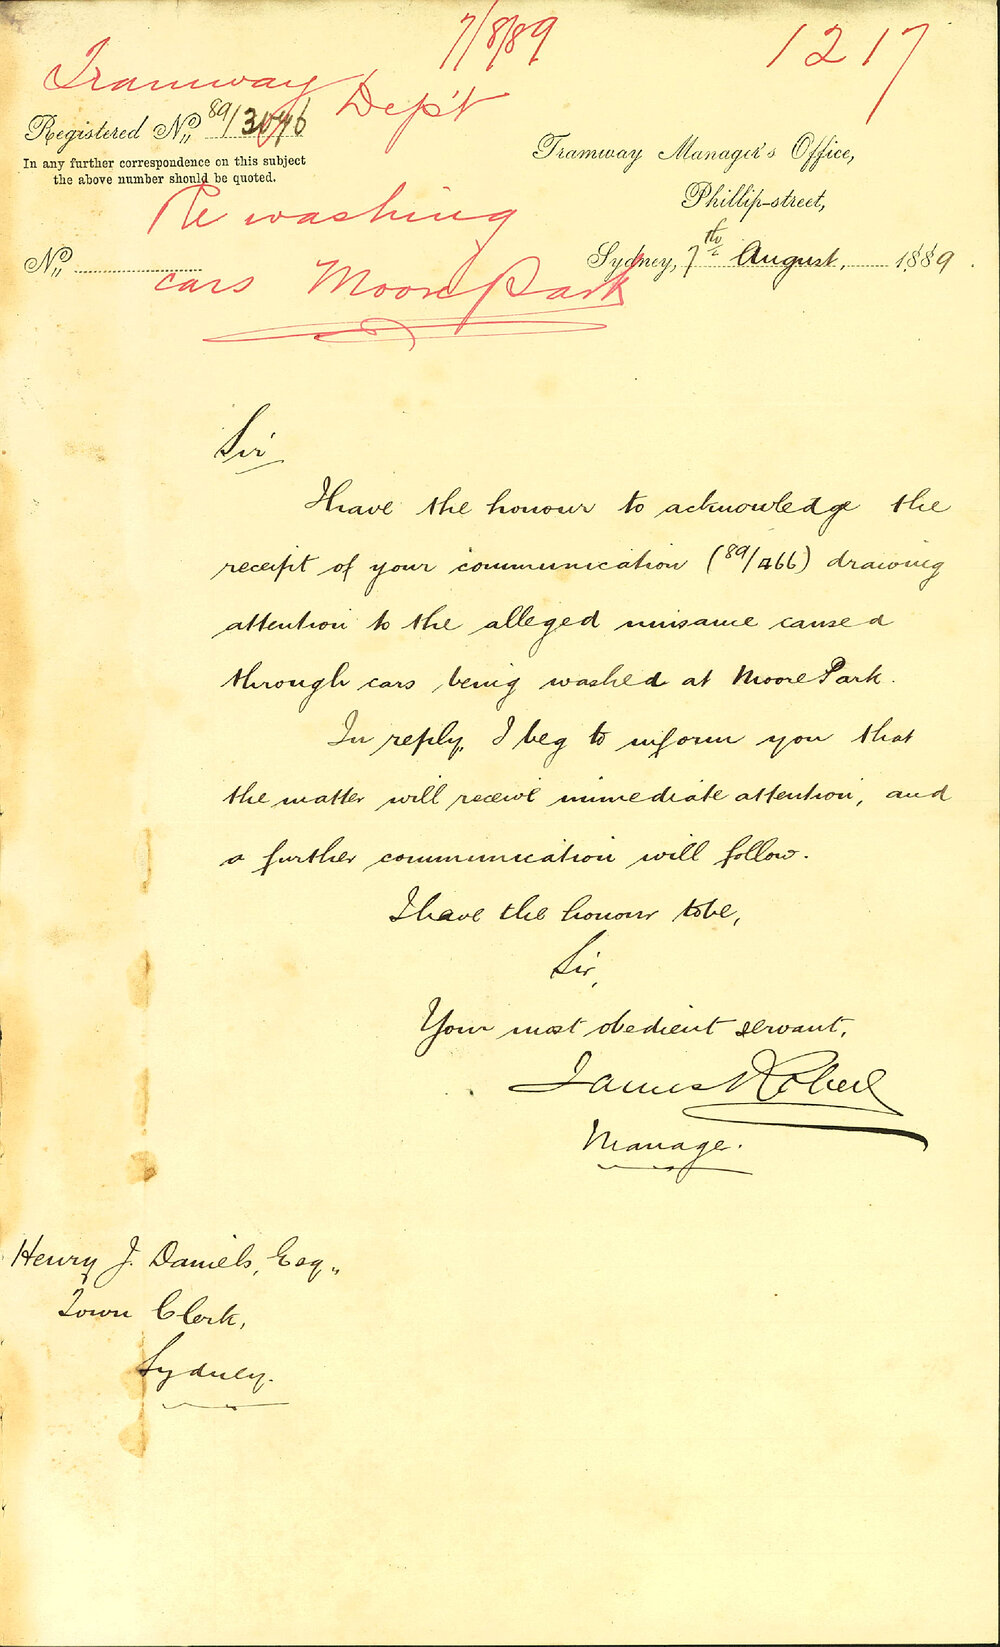 7/8/89
1217
Tramway Dep't
Registered No. 89/
In any further correspondence on this subject
the above number should be quoted.
Re washing
cars Moore Park
No.
Tramway Manager's Office,
Phillip-street,
Sydney, 7th August, 1889.
Sir
I have the honour to acknowledge the
receipt of your communication (89/466) drawing
attention to the alleged nuisance caused
through cars being washed at Moore Park.
In reply, I beg to inform you that
the matter will receive immediate attention, and
a further communication will follow.
I have the honour to be,
Sir,
Your most obedient servant,
James Roberts
Manager.
Henry J. Daniels, Esq.,
Town Clerk,
Sydney.